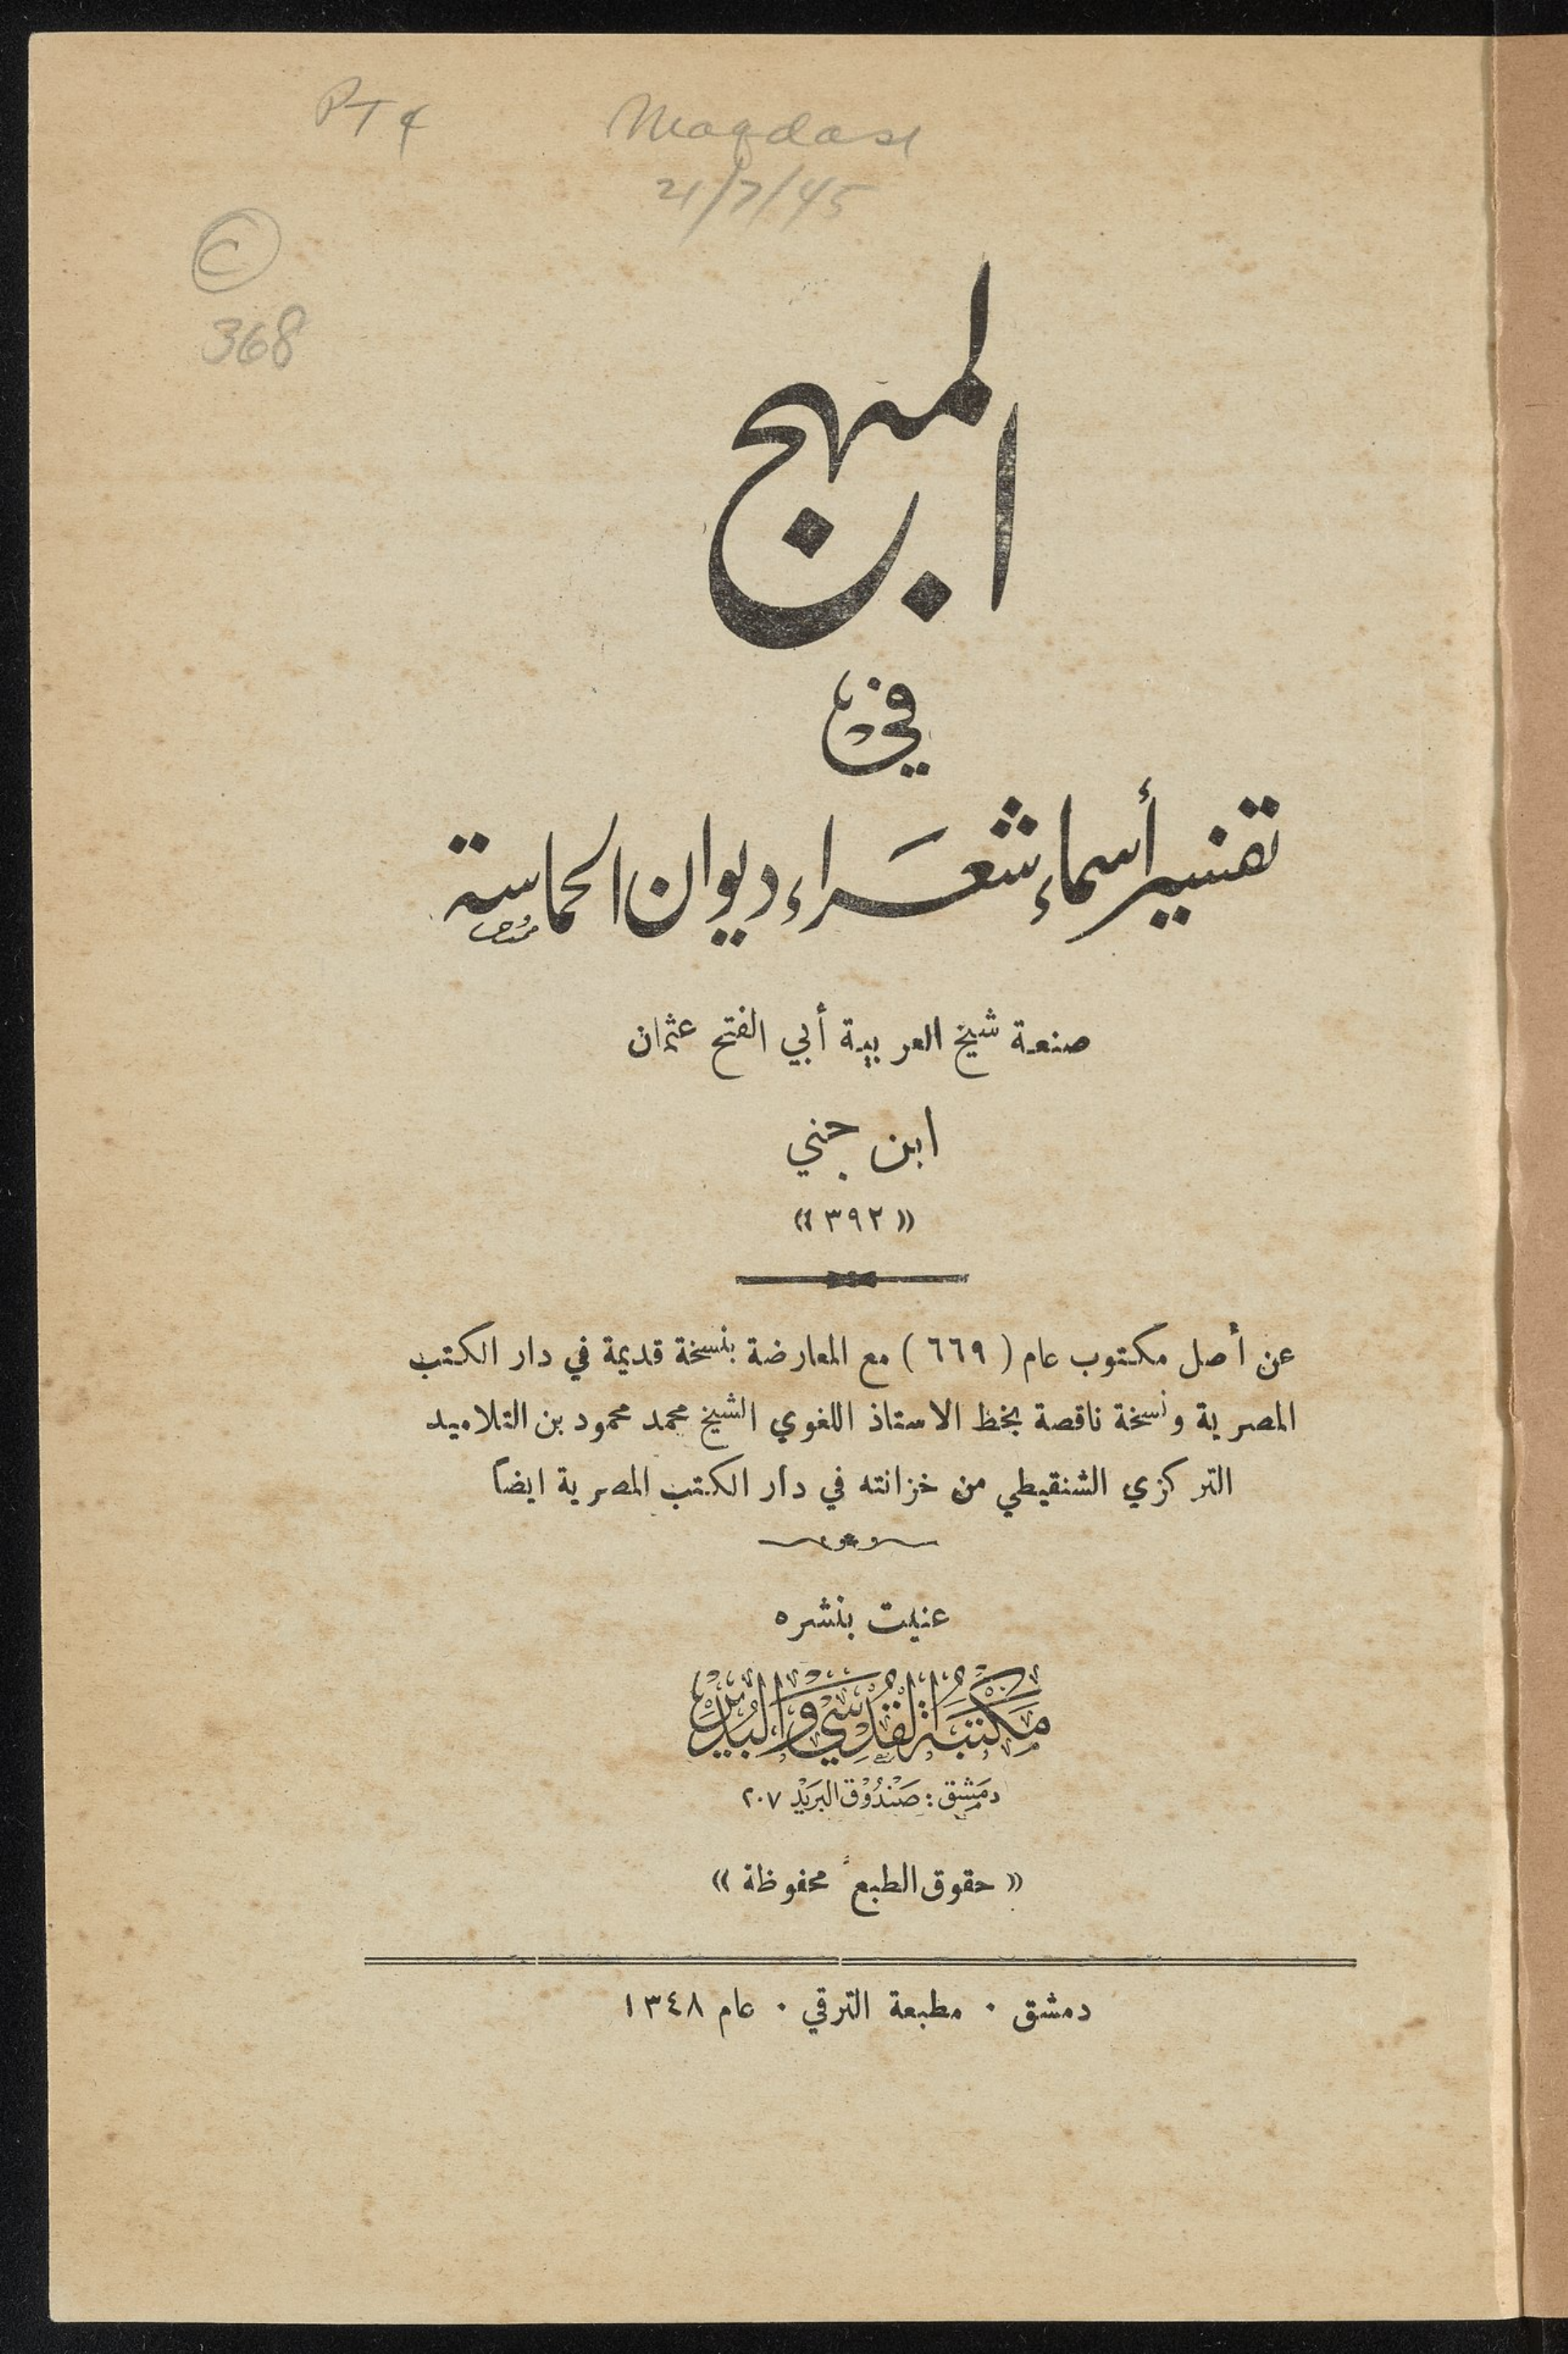 PT 4
Maqdasi
21/7/45
C
368
المبهج
في
تفسير أسماء شعراء ديوان الحماسة
صنعة شيخ العربية أبي الفتح عثمان
ابن جني
«٣٩٢»
عن أصل مكتوب عام (٦٦٩) مع المعارضة بنسخة قديمة في دار الكتب
المصرية ونسخة ناقصة بخط الاستاذ اللغوي الشيخ محمد محمود بن التلاميد
التركزي الشنقيطي من خزانته في دار الكتب المصرية ايضاً
عنيت بنشره
مَكْتَبَة القُدْسِي وَالبُدَيْر
دمَشِق : صَنْدُوْق البَرَيْد ٢٠٧
« حقوق الطبع محفوظة »
دمشق · مطبعة الترقي · عام ١٣٤٨